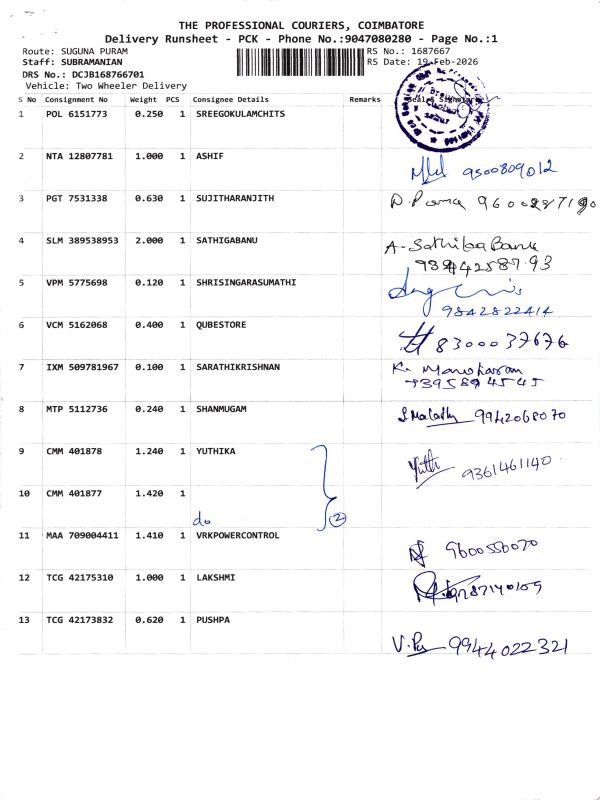 THE PROFESSIONAL COURIERS, COIMBATORE
Delivery Runsheet - PCK - Phone No.:9047080280 - Page No.:1
Route: SUGUNA PURAM RS No.: 1687667
Staff: SUBRAMANIAN RS Date: 19-Feb-2026
DRS No.: DCJB168766701
Vehicle: Two Wheeler Delivery
S No Consignment No Weight PCS Consignee Details Remarks Seal & Signature
1 POL 6151773 0.250 1 SREEGOKULAMCHITS
2 NTA 12807781 1.000 1 ASHIF
9500809012
3 PGT 7531338 0.630 1 SUJITHARANJITH
4 SLM 389538953 2.000 1 SATHIGABANU
A-Sathiba Banu
5 VPM 5775698 0.120 1 SHRISINGARASUMATHI
9842822414
6 VCM 5162068 0.400 1 QUBESTORE
8300037676
7 IXM 509781967 0.100 1 SARATHIKRISHNAN
K. Manoharan
8 MTP 5112736 0.240 1 SHANMUGAM
S.Malathy 9942068070
9 CMM 401878 1.240 1 YUTHIKA
Yuthi 9361461140
10 CMM 401877 1.420 1
do 2
11 MAA 709004411 1.410 1 VRKPOWERCONTROL
9600550070
12 TCG 42175310 1.000 1 LAKSHMI
13 TCG 42173832 0.620 1 PUSHPA
V.Pu 9944022321